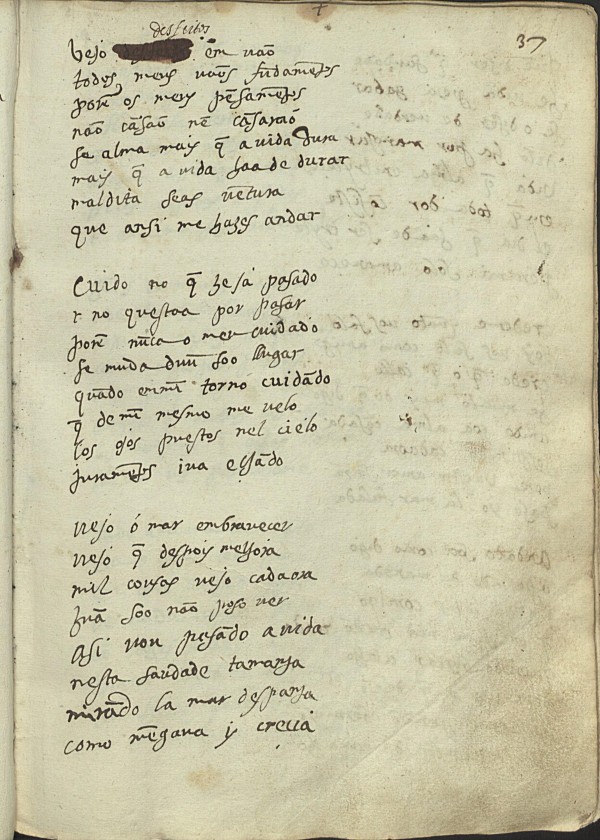 37
desfeitos
Vejo em vão
todos meus vãos fũdamẽtos
porẽ os meus pẽsamẽtos
não cãsão nẽ cãsarão
se alma mais q̃ a vida dura
mais q̃ a vida haa de durar
maldita seas vẽtura
que ansi me hazes andar
Cuido no q̃ he ja pasado
r no questaa por pasar
porẽ nũca o meu cuidado
se muda dũu soo llugar
quãdo em mĩ torno cuidãdo
q̃ de mĩ mesmo me velo
los ojos puestos nel cielo
juramẽtos iva echãdo
Vejo ó mar embravecer
vejo q̃ despois melhora
mil cousas vejo cadaora
hũa soo não poso ver
Asi vou pasãdo a vida
nesta saudade tamanha
mirãdo la mar despanha
como mẽgava y crecia